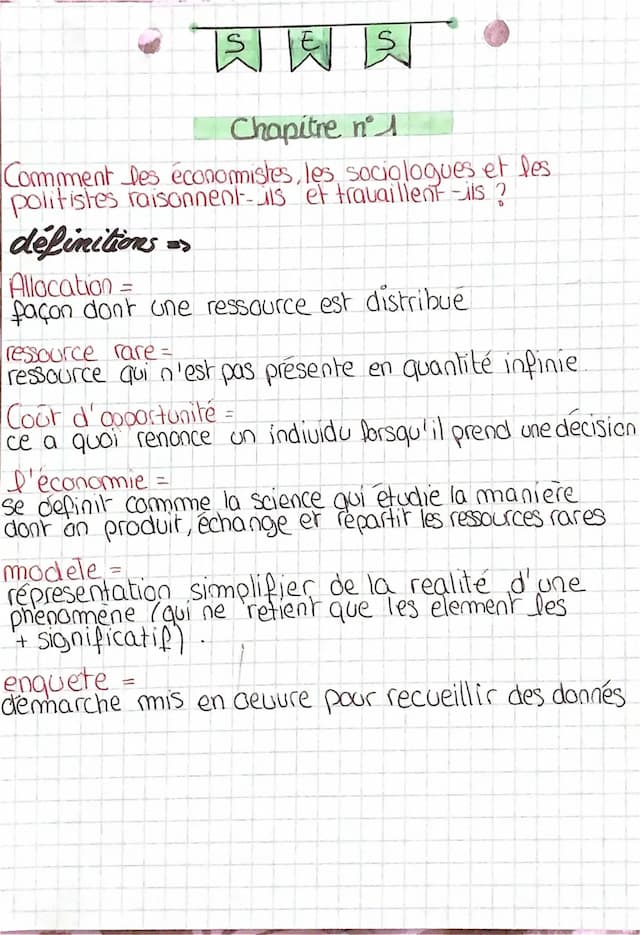 S E S
Chapitre n°1
Comment les économistes, les sociologues et les
politistes raisonnent-ils et travaillent-ils ?
définitions =>
Allocation =
façon dont une ressource est distribué
ressource rare =
ressource qui n'est pas présente en quantité infinie.
Coût d'opportunité =
ce a quoi renonce un individu lorsqu'il prend une décision
l'économie =
se définit commme la science qui étudie la manière
dont on produit, échange et répartit les ressources rares
modèle =
réprésentation simplifier de la realité d'une
phénomène (qui ne retient que les element les
+ significatif).
enquete =
démarche mis en oeuvre pour recueillir des donnés